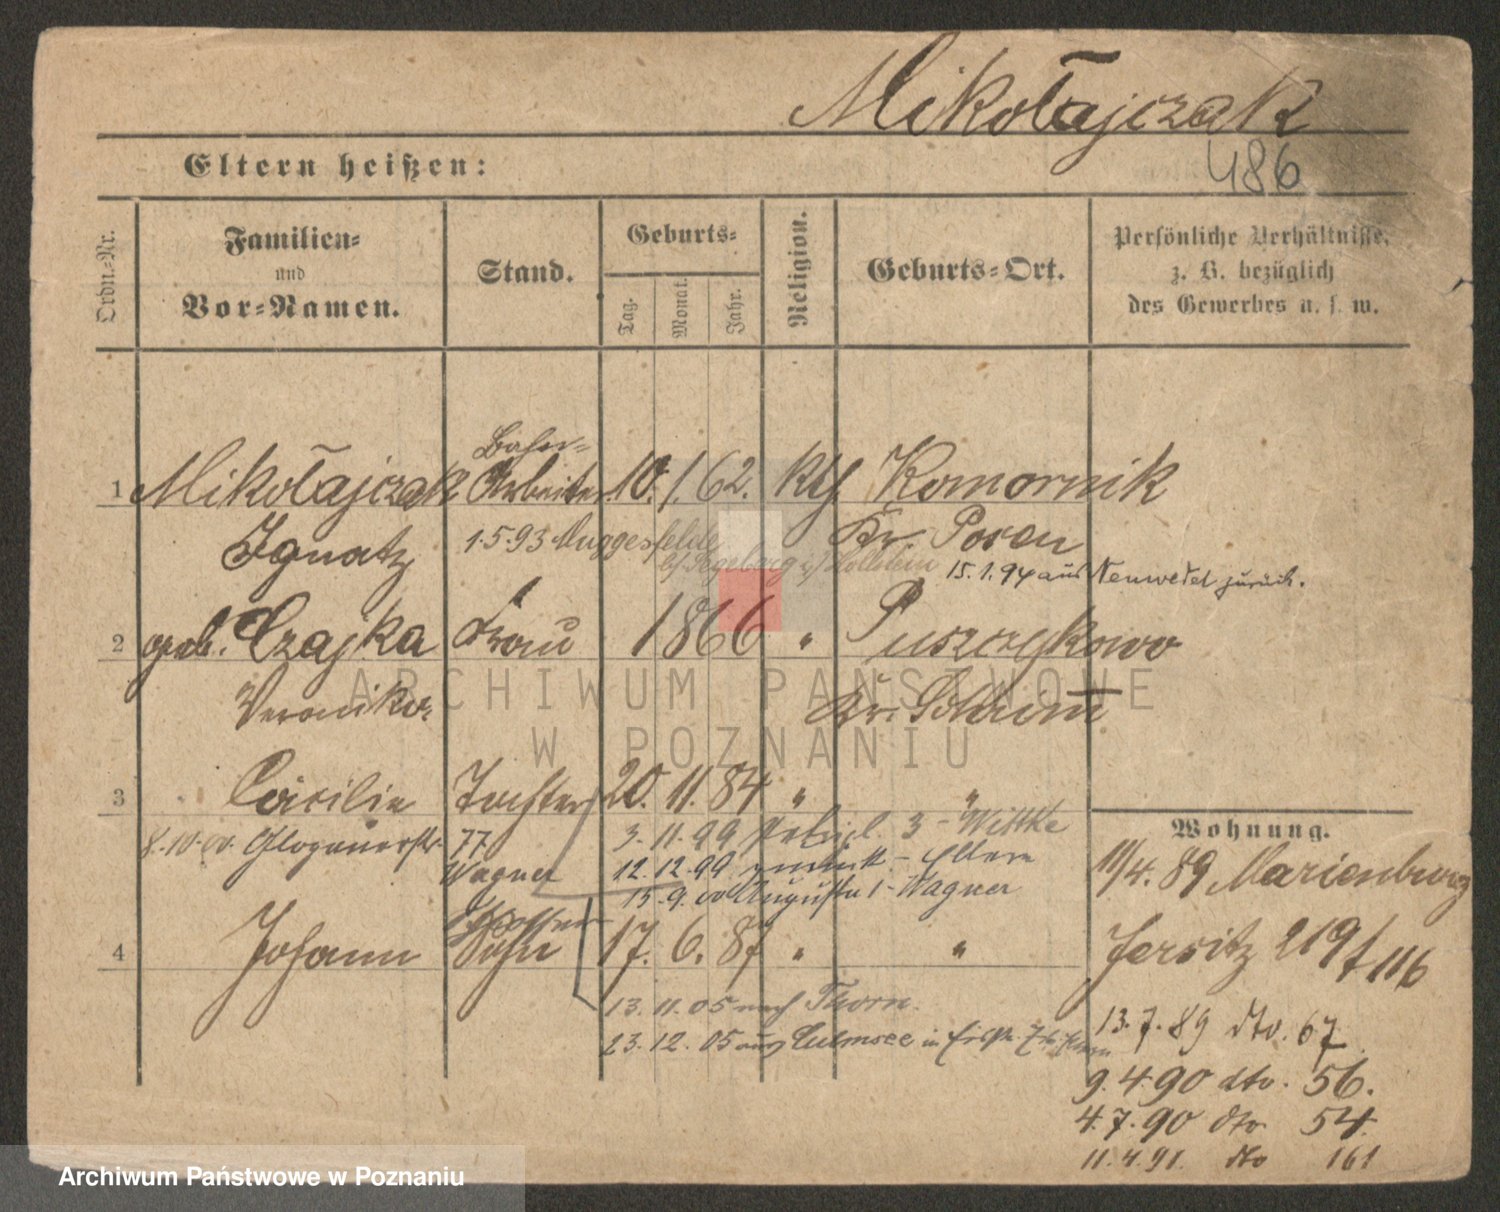 Mikołajczak
486
Eltern heißen:
Ordn.-Nr.
Familien-
und
Vor-Namen.
Stand.
Geburts-
Tag.
Monat.
Jahr.
Religion.
Geburts-Ort.
Persönliche Verhältnisse,
z. B. bezüglich
des Gewerbes u. s. w.
Bahn-
1 Mikołajczak Arbeiter 10. 1. 62. Kth Komornik
Ignatz Kr. Posen
1.5.93 Muggesfelde
b/ Segeberg i/ Holstein
15.1.94 aus Neuwedel zurück.
2 geb. Czajka Frau 1866 " Puszczykowo
Veronika Kr. Schrimm
3 Cäcilie Tochter 20. 11. 84 " "
8.10.00. Glogauerstr. 77
Wagner
3. 11. 99 3 - Wittke
12. 12. 99 zurück - Eltern
15. 9. 00 Augusta 1 - Wagner
4 Johann Sohn 17. 6. 87 " "
13. 11. 05 nach Thorn.
23. 12. 05 aus Culmsee in
Wohnung.
11/4. 89 Marienburg
Jersitz 219/116
13. 7. 89 dto. 67
9. 4. 90 dto. 56.
4. 7. 90 dto 54.
11. 4. 91. dto 161
ARCHIWUM PAŃSTWOWE
W POZNANIU
Archiwum Państwowe w Poznaniu